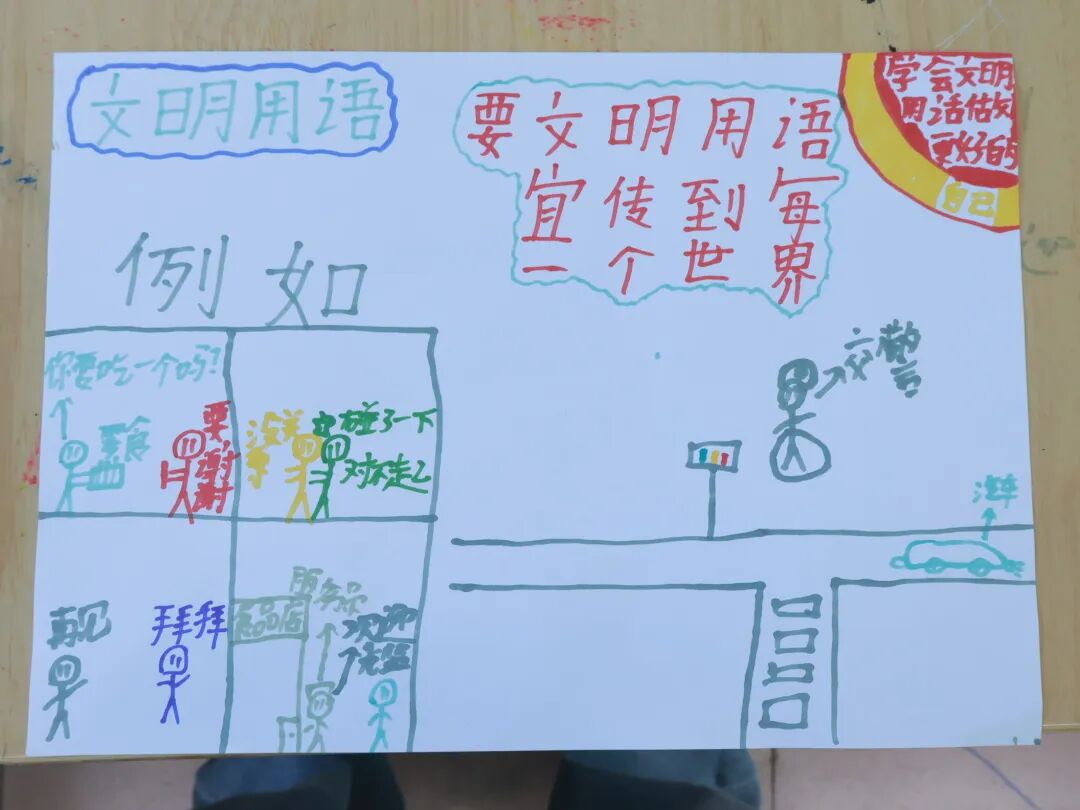 文明用语
要文明用语
宣传到每
一个世界
学会文明
用语做
更好的
自己
例如
你要吃一个吗？
零食
要，
谢谢
没关
事
碰了一下
对不起
再见
拜拜
服务员
食品店
欢迎
光临
交警
汽车